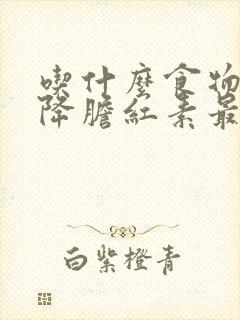 喫什麼食物
降膽紅素最
白紫橙青